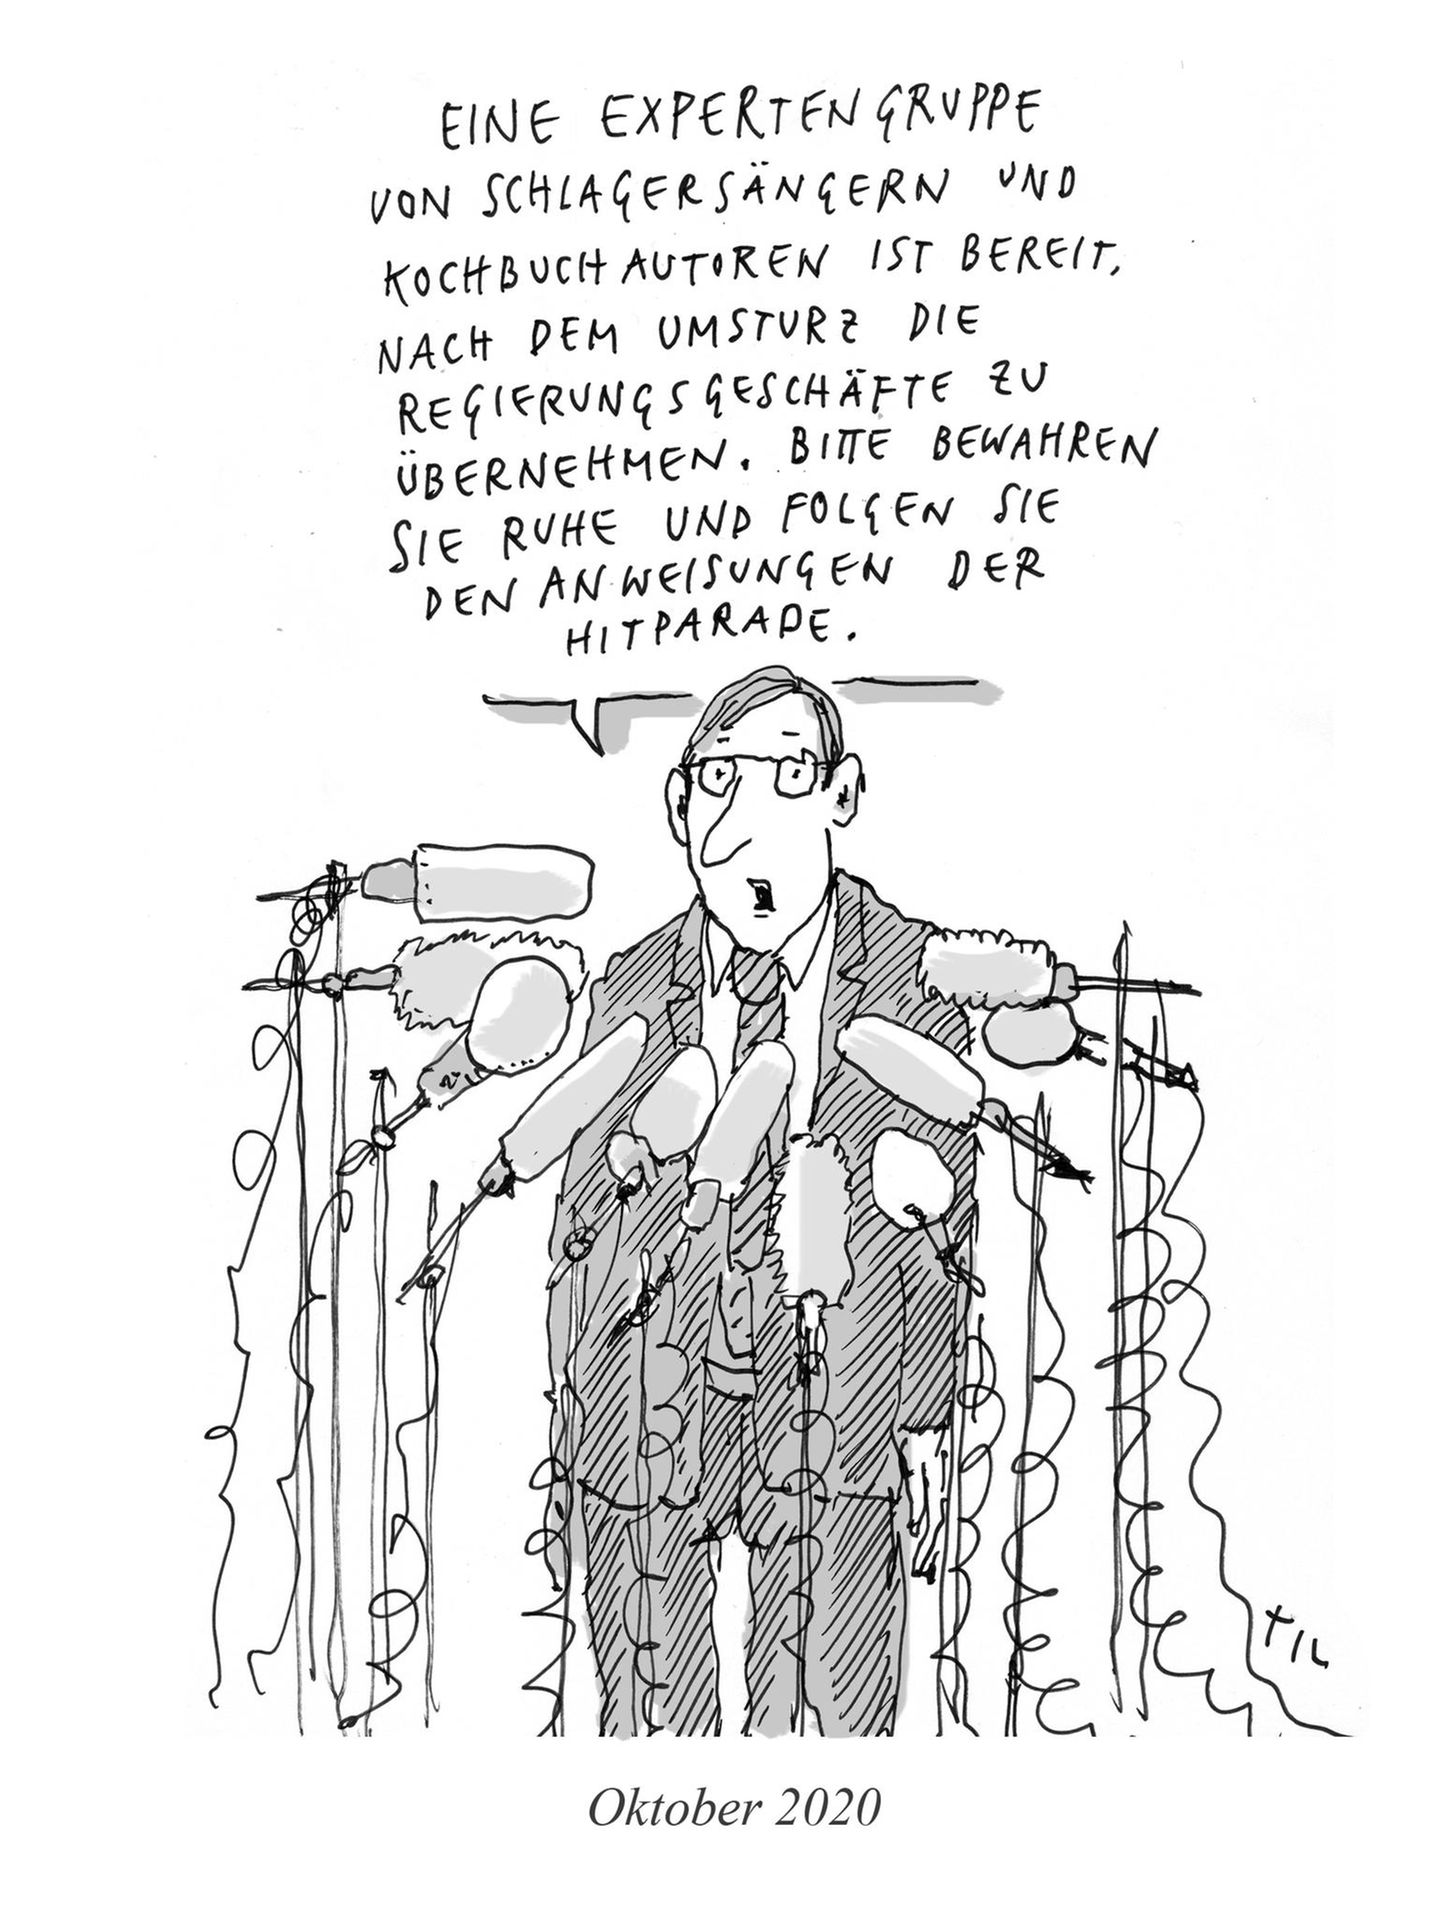 EINE EXPERTENGRUPPE
VON SCHLAGERSÄNGERN UND
KOCHBUCHAUTOREN IST BEREIT,
NACH DEM UMSTURZ DIE
REGIERUNGSGESCHÄFTE ZU
ÜBERNEHMEN. BITTE BEWAHREN
SIE RUHE UND FOLGEN SIE
DEN ANWEISUNGEN DER
HITPARADE.
TIL
Oktober 2020